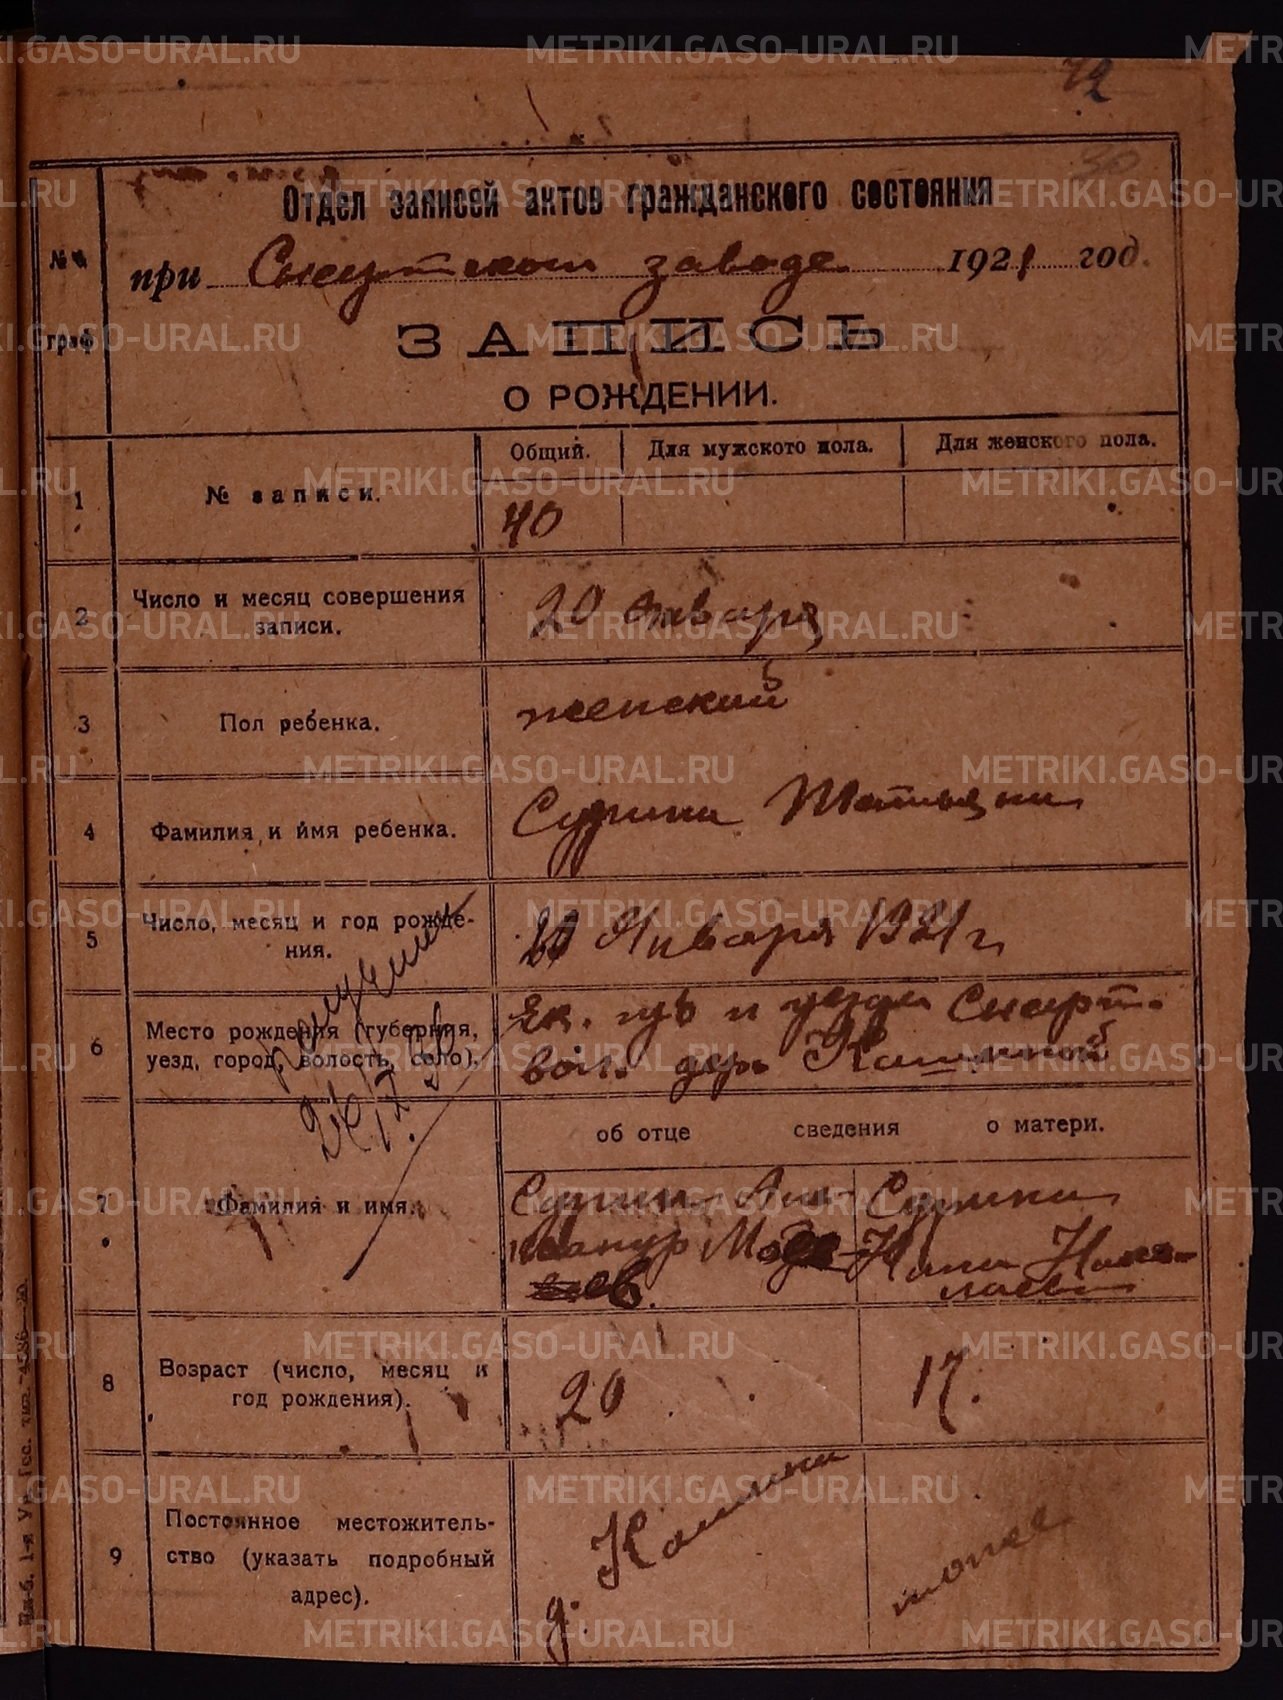 72
30
Отдел записей актов гражданского состояния
№ №
граф
при Сысертском заводе 1921 год.
ЗАПИСЬ
О РОЖДЕНИИ.
Общий. Для мужского пола. Для женского пола.
1 № записи. 40
2 Число и месяц совершения
записи. 20 Января
3 Пол ребенка. женский
4 Фамилия и имя ребенка. Сурина Татьяна
5 Число, месяц и год рожде-
ния. Января 1921 г.
6 Место рождения (губерния,
уезд, город, волость, село).
Ек. губ и уезда Сысерт.
вол. дер. Кашиной
об отце сведения о матери.
7 Фамилия и имя.
Сурин Але-
ксандр
Сурина
Нина Нико-
лаевна
8 Возраст (число, месяц и
год рождения). 20 17.
9 Постоянное местожитель-
ство (указать подробный
адрес).
д. Кашина
тоже
METRIKI.GASO-URAL.RU